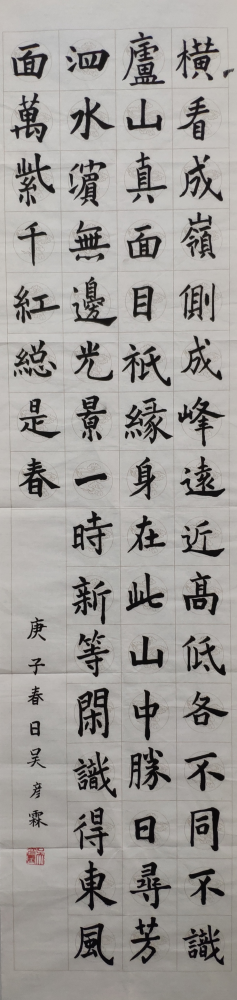 橫看成嶺側成峰遠近高低各不同不識
廬山真面目祇緣身在此山中勝日尋芳
泗水濱無邊光景一時新等閑識得東風
面萬紫千紅総是春
庚子春日吴彦霖